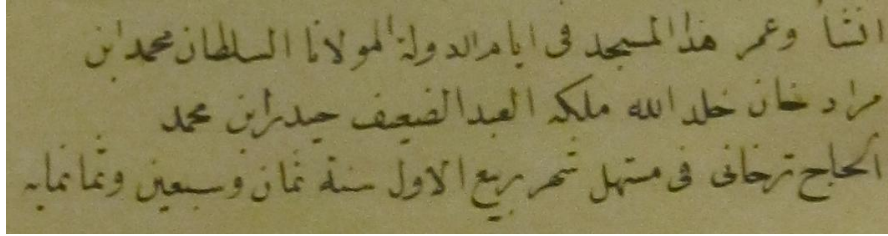 انشأ وعمر هذا المسجد فى ايام الدولة المولانا السلطان محمد ابن
مراد خان خلد الله ملكه العبد الضعيف حيدر ابن محمد
الحاج ترخانى فى مستهل شهر ربيع الاول سنة ثمان وسبعين وثمانمايه